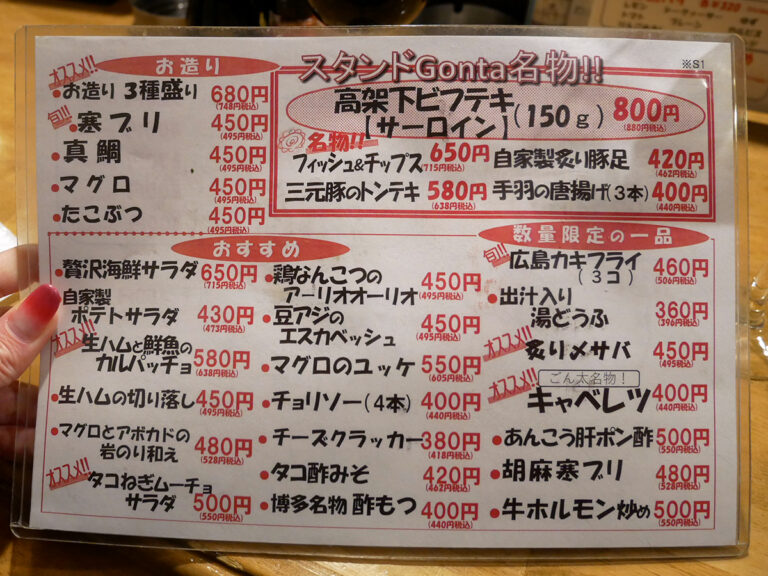 ※S1
お造り
オススメ!!
•お造り 3種盛り 680円
(748円税込)
旬!!
•寒ブリ 450円
(495円税込)
•真鯛 450円
(495円税込)
•マグロ 450円
(495円税込)
•たこぶつ 450円
(495円税込)
スタンドGonta名物!!
高架下ビフテキ
【サーロイン】(150g) 800円
(880円税込)
名物!!
フィッシュ&チップス 650円
(715円税込)
自家製炙り豚足 420円
(462円税込)
三元豚のトンテキ 580円
(638円税込)
手羽の唐揚げ(3本) 400円
(440円税込)
おすすめ
•贅沢海鮮サラダ 650円
(715円税込)
•自家製
ポテトサラダ 430円
(473円税込)
オススメ!!
•生ハムと鮮魚の
カルパッチョ 580円
(638円税込)
•生ハムの切り落し 450円
(495円税込)
•マグロとアボカドの
岩のり和え 480円
(528円税込)
オススメ!!
•タコねぎムーチョ
サラダ 500円
(550円税込)
•鶏なんこつの
アーリオオーリオ 450円
(495円税込)
•豆アジの
エスカベッシュ 450円
(495円税込)
•マグロのユッケ 550円
(605円税込)
•チョリソー(4本) 400円
(440円税込)
•チーズクラッカー 380円
(418円税込)
•タコ酢みそ 420円
(462円税込)
•博多名物 酢もつ 400円
(440円税込)
数量限定の一品
旬!!
•広島カキフライ
(3コ) 460円
(506円税込)
•出汁入り
湯どうふ 360円
(396円税込)
オススメ!!
•炙りメサバ 450円
(495円税込)
ごん太名物!
オススメ!!
•キャベレツ 400円
(440円税込)
•あんこう肝ポン酢 500円
(550円税込)
•胡麻寒ブリ 480円
(528円税込)
•牛ホルモン炒め 500円
(550円税込)